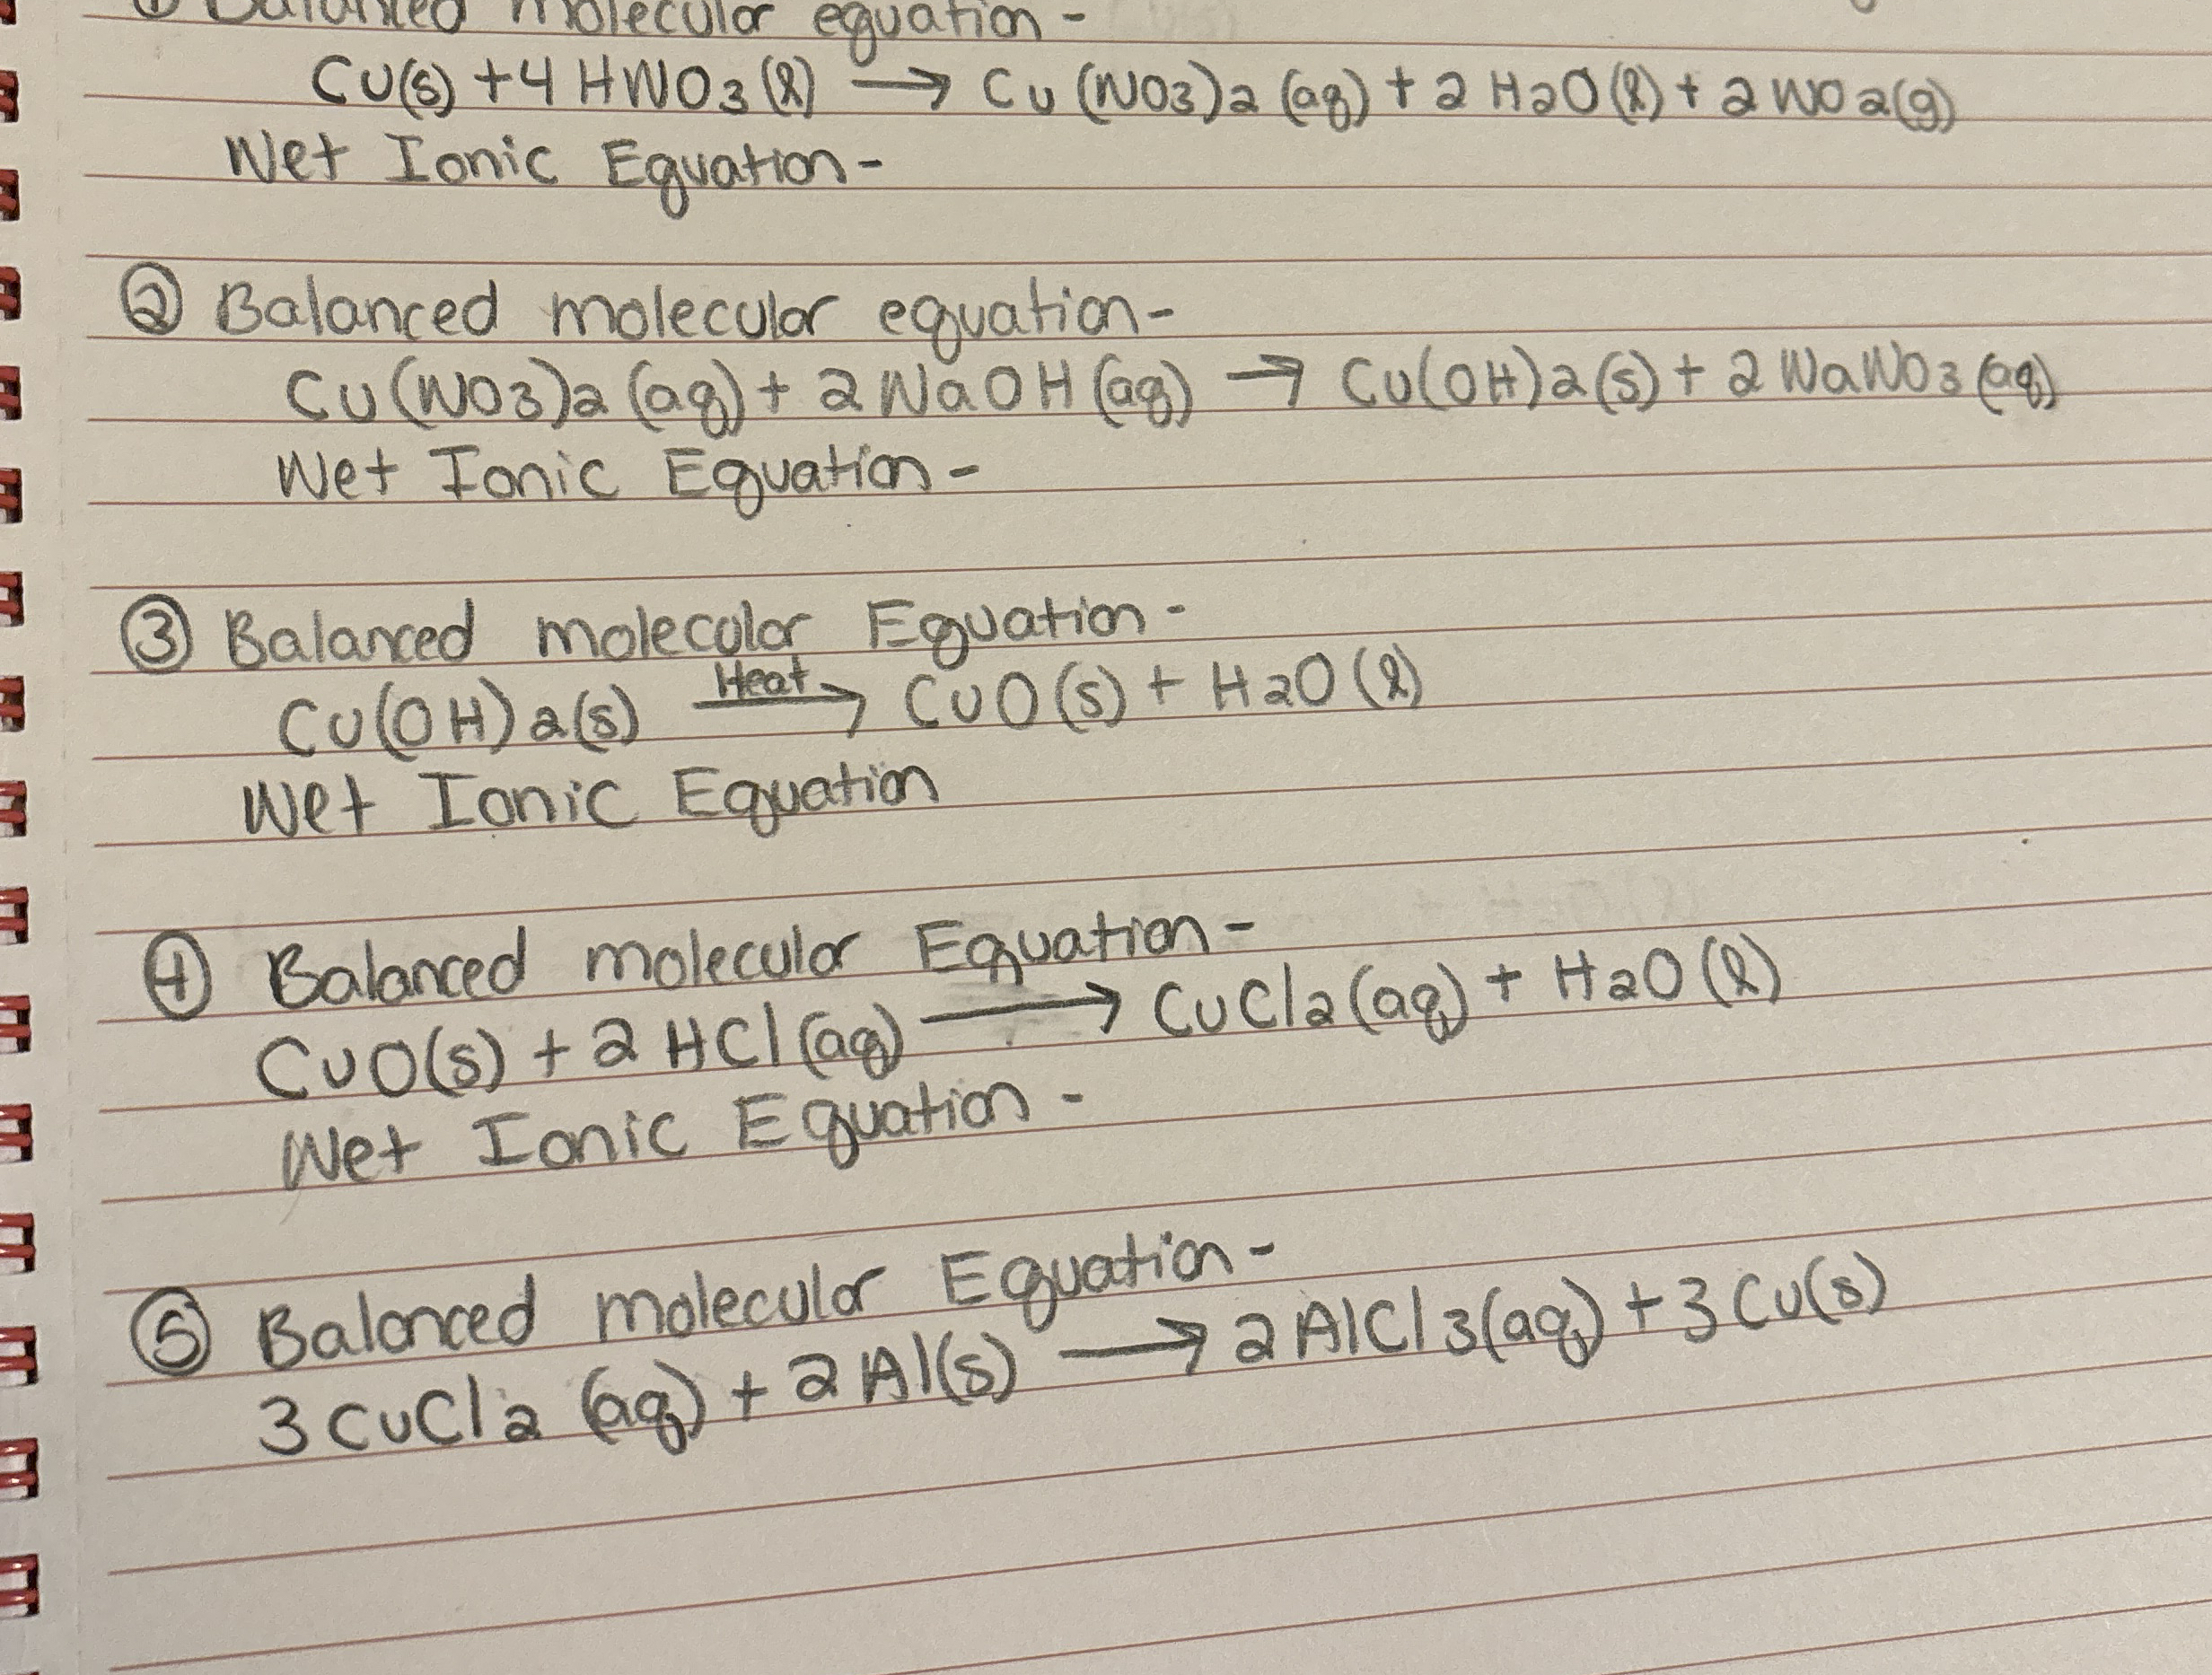 ① Balanced molecular equation -
Cu(s) + 4 HNO3(l) → Cu(NO3)2 (aq) + 2 H2O(l) + 2 NO2(g)
Net Ionic Equation -
② Balanced molecular equation -
Cu(NO3)2 (aq) + 2 NaOH (aq) → Cu(OH)2(s) + 2 NaNO3 (aq)
Net Ionic Equation -
③ Balanced molecular Equation -
Cu(OH)2(s) Heat→ CuO(s) + H2O(l)
Net Ionic Equation
④ Balanced molecular Equation -
CuO(s) + 2 HCl(aq) → CuCl2(aq) + H2O(l)
Net Ionic Equation -
⑤ Balanced molecular Equation -
3 CuCl2 (aq) + 2 Al(s) → 2 AlCl3(aq) + 3 Cu(s)